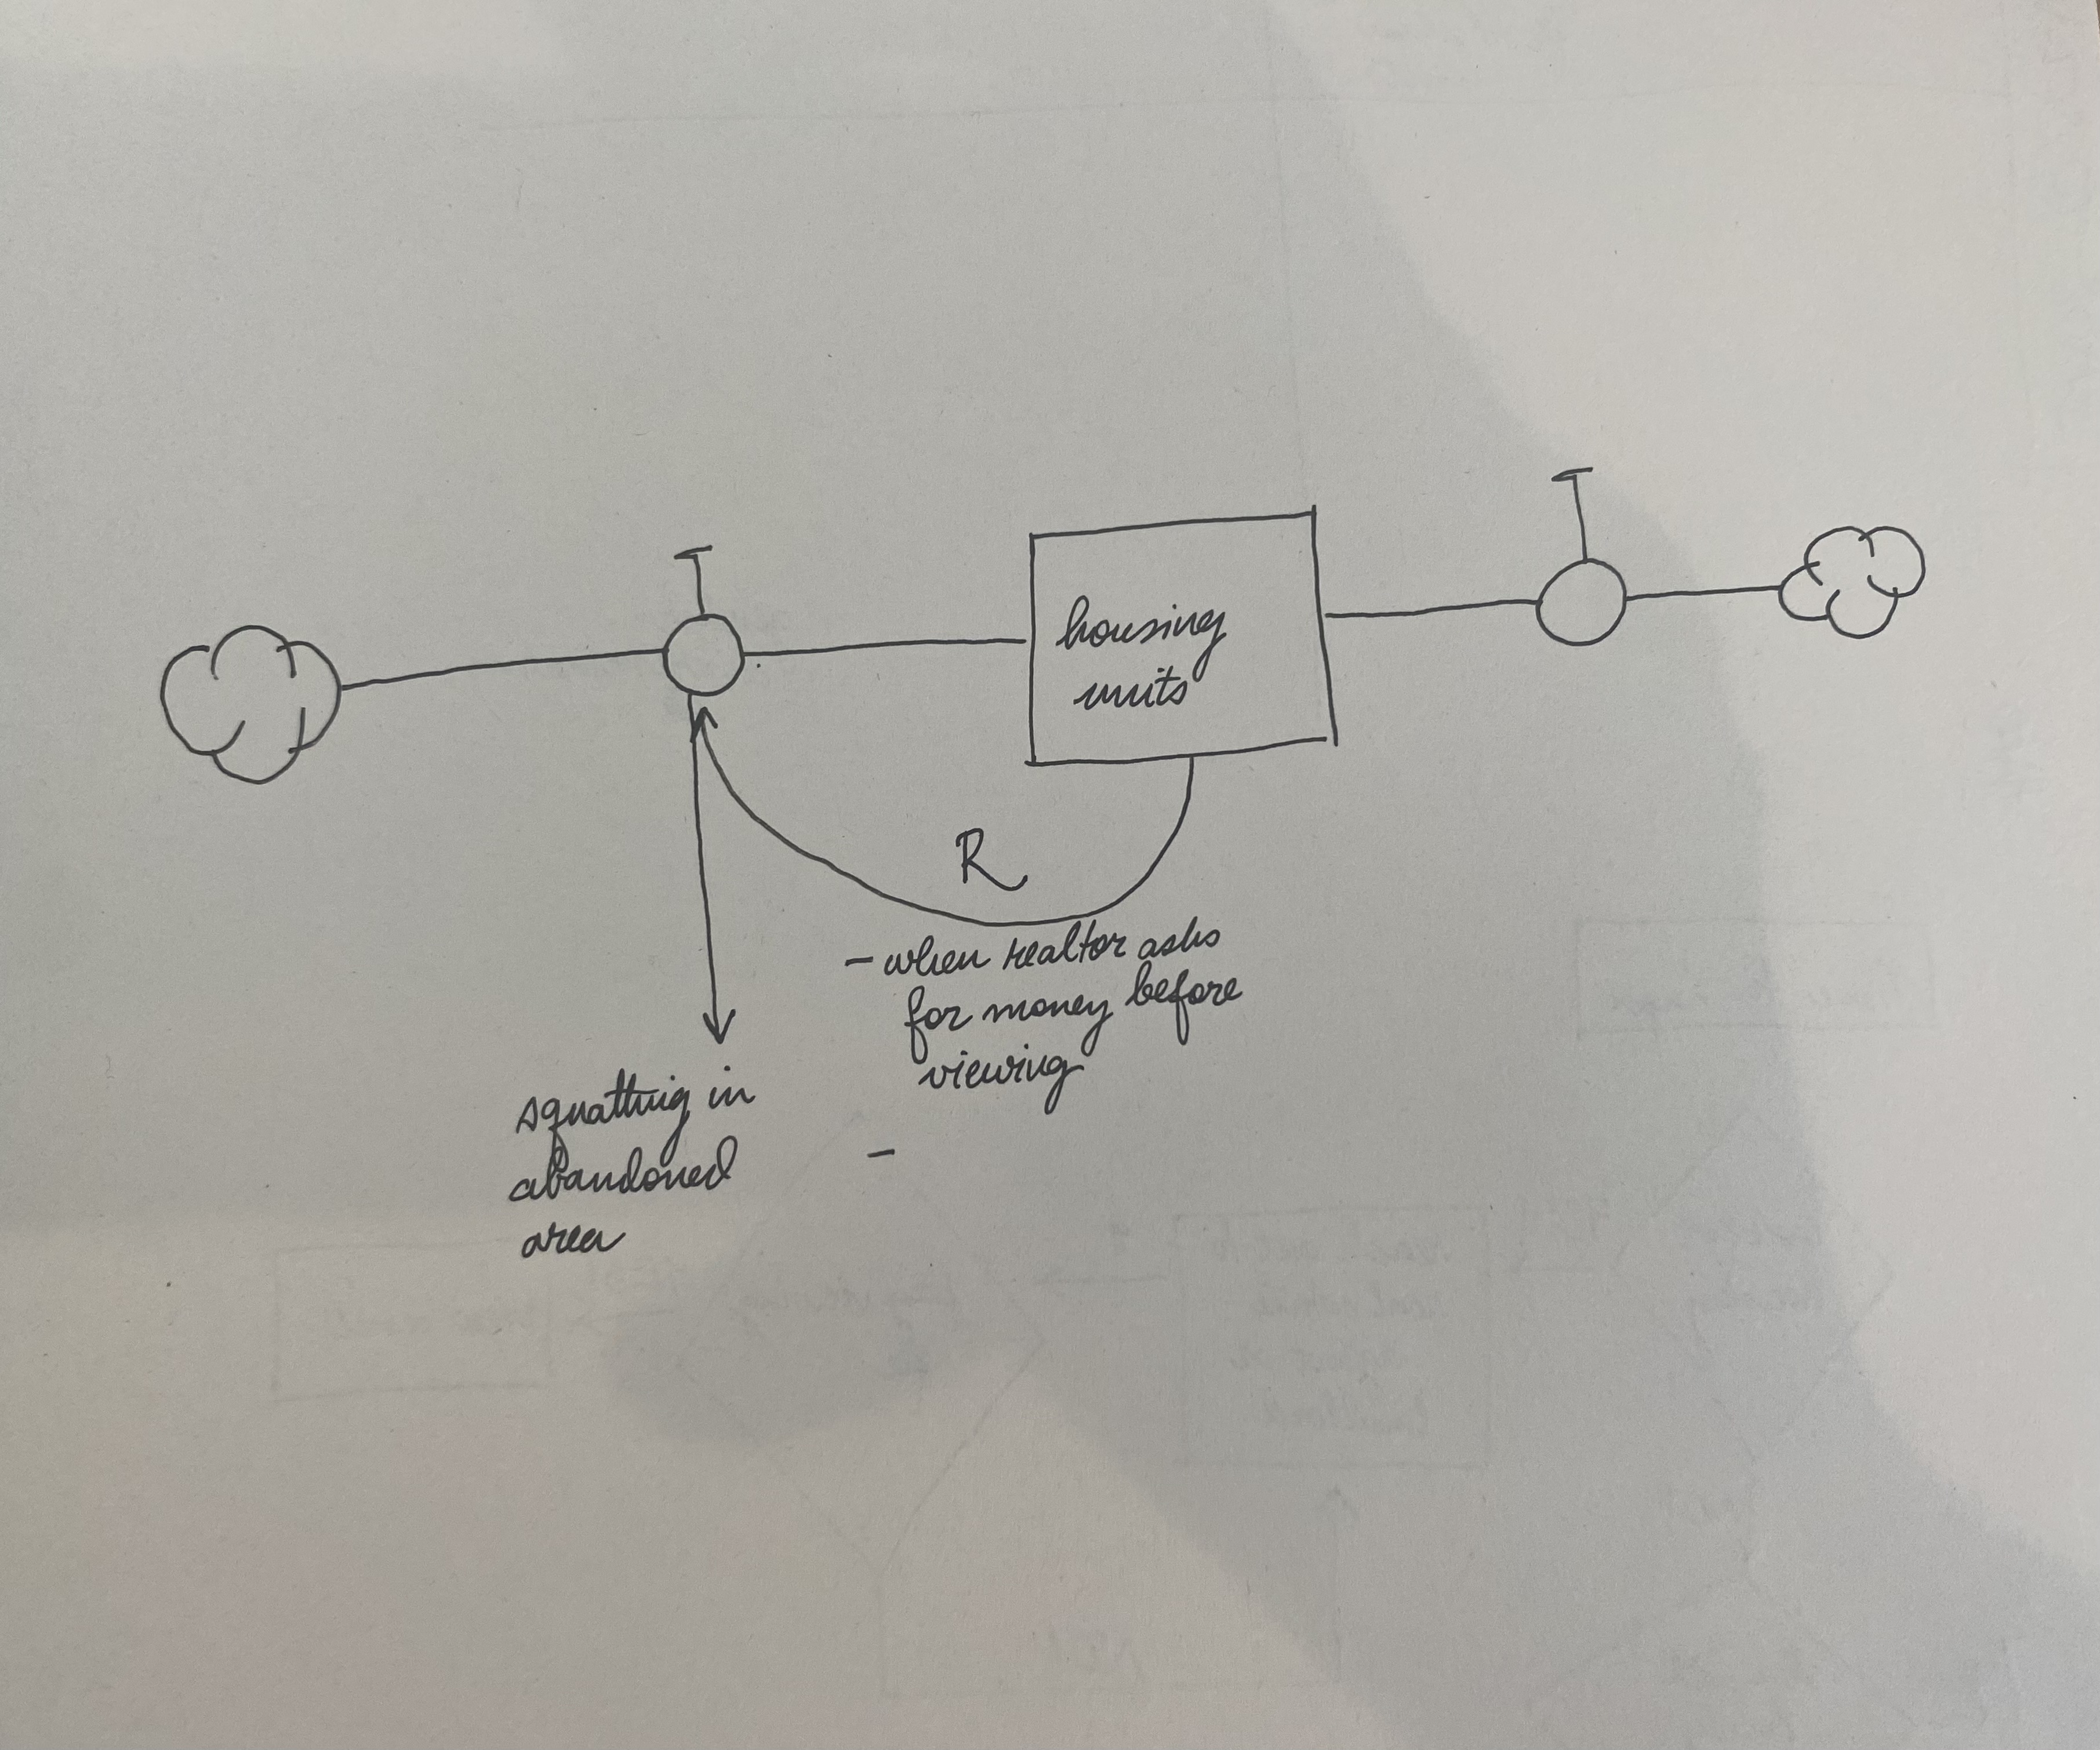 housing
units
R
- when realtor asks
for money before
viewing
-
squatting in
abandoned
area